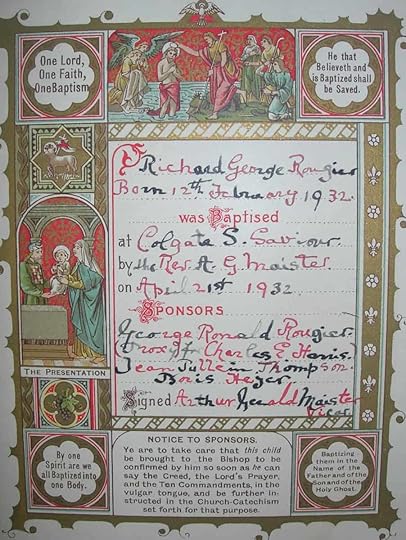 One Lord,
One Faith,
One Baptism
He that
Believeth and
is Baptized shall
be Saved.
Richard George Rougier
Born 12th Febuary 1932.
was Baptised
at Colgate S. Saviour.
by the Rev. A. G Maister
on April 21st 1932.
SPONSORS
George Ronald Rougier.
Proxy for Charles E. Harris.
Jean Thompson
Boris
Signed Arthur Gerald Maister
Vicar
THE PRESENTATION
By one
Spirit are we
all Baptized into
one Body.
NOTICE TO SPONSORS.
Ye are to take care that this child
be brought to the Bishop to be
confirmed by him so soon as he can
say the Creed, the Lord's Prayer,
and the Ten Commandments, in the
vulgar tongue, and be further in-
structed in the Church-Catechism
set forth for that purpose.
Baptizing
them in the
Name of the
Father and of the
Son and of the
Holy Ghost.